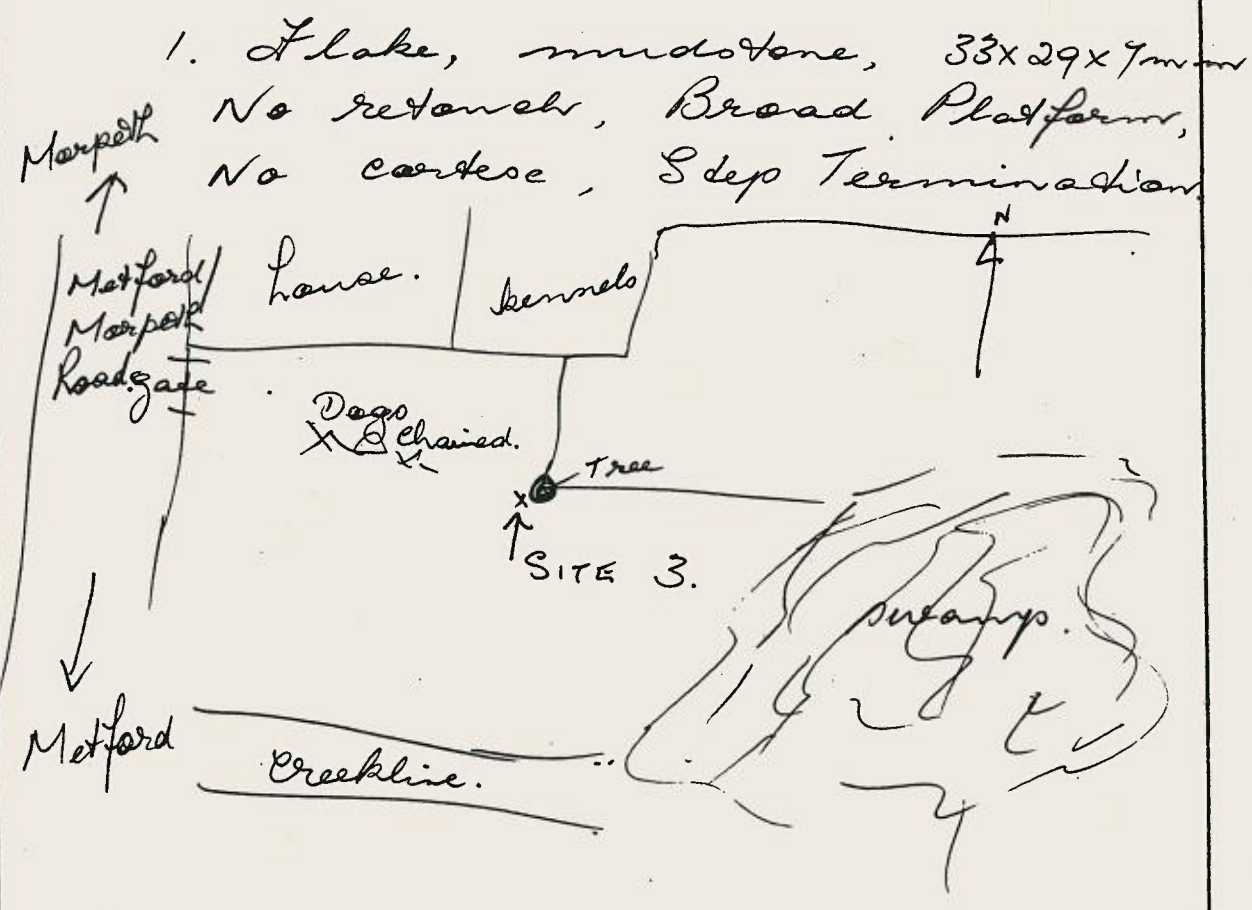 1. Flake, mudstone, 33x29x9mm
No retouch, Broad Platform,
No cortese, Step Termination.
Morpeth
N
Metford/
Morpeth
Road.
gate
house.
kennels
Dogs
Chained.
Tree
x
SITE 3.
swamp.
Metford
Creekline.